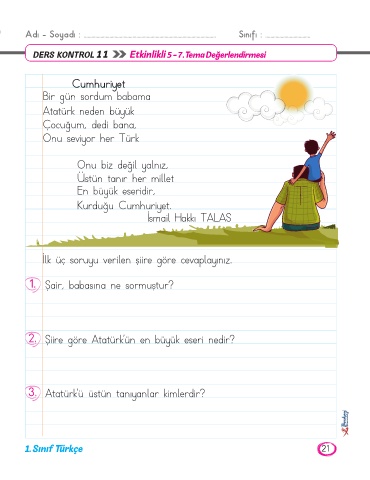 Adı - Soyadı : ................................................ Sınıfı : ................
DERS KONTROL 11 Etkinlikli 5 - 7. Tema Değerlendirmesi
Cumhuriyet
Bir gün sordum babama
Atatürk neden büyük
Çocuğum, dedi bana,
Onu seviyor her Türk
Onu biz değil yalnız,
Üstün tanır her millet
En büyük eseridir,
Kurduğu Cumhuriyet.
İsmail Hakkı TALAS
İlk üç soruyu verilen şiire göre cevaplayınız.
1. Şair, babasına ne sormuştur?
2. Şiire göre Atatürk'ün en büyük eseri nedir?
3. Atatürk'ü üstün tanıyanlar kimlerdir?
1. Sınıf Türkçe
21